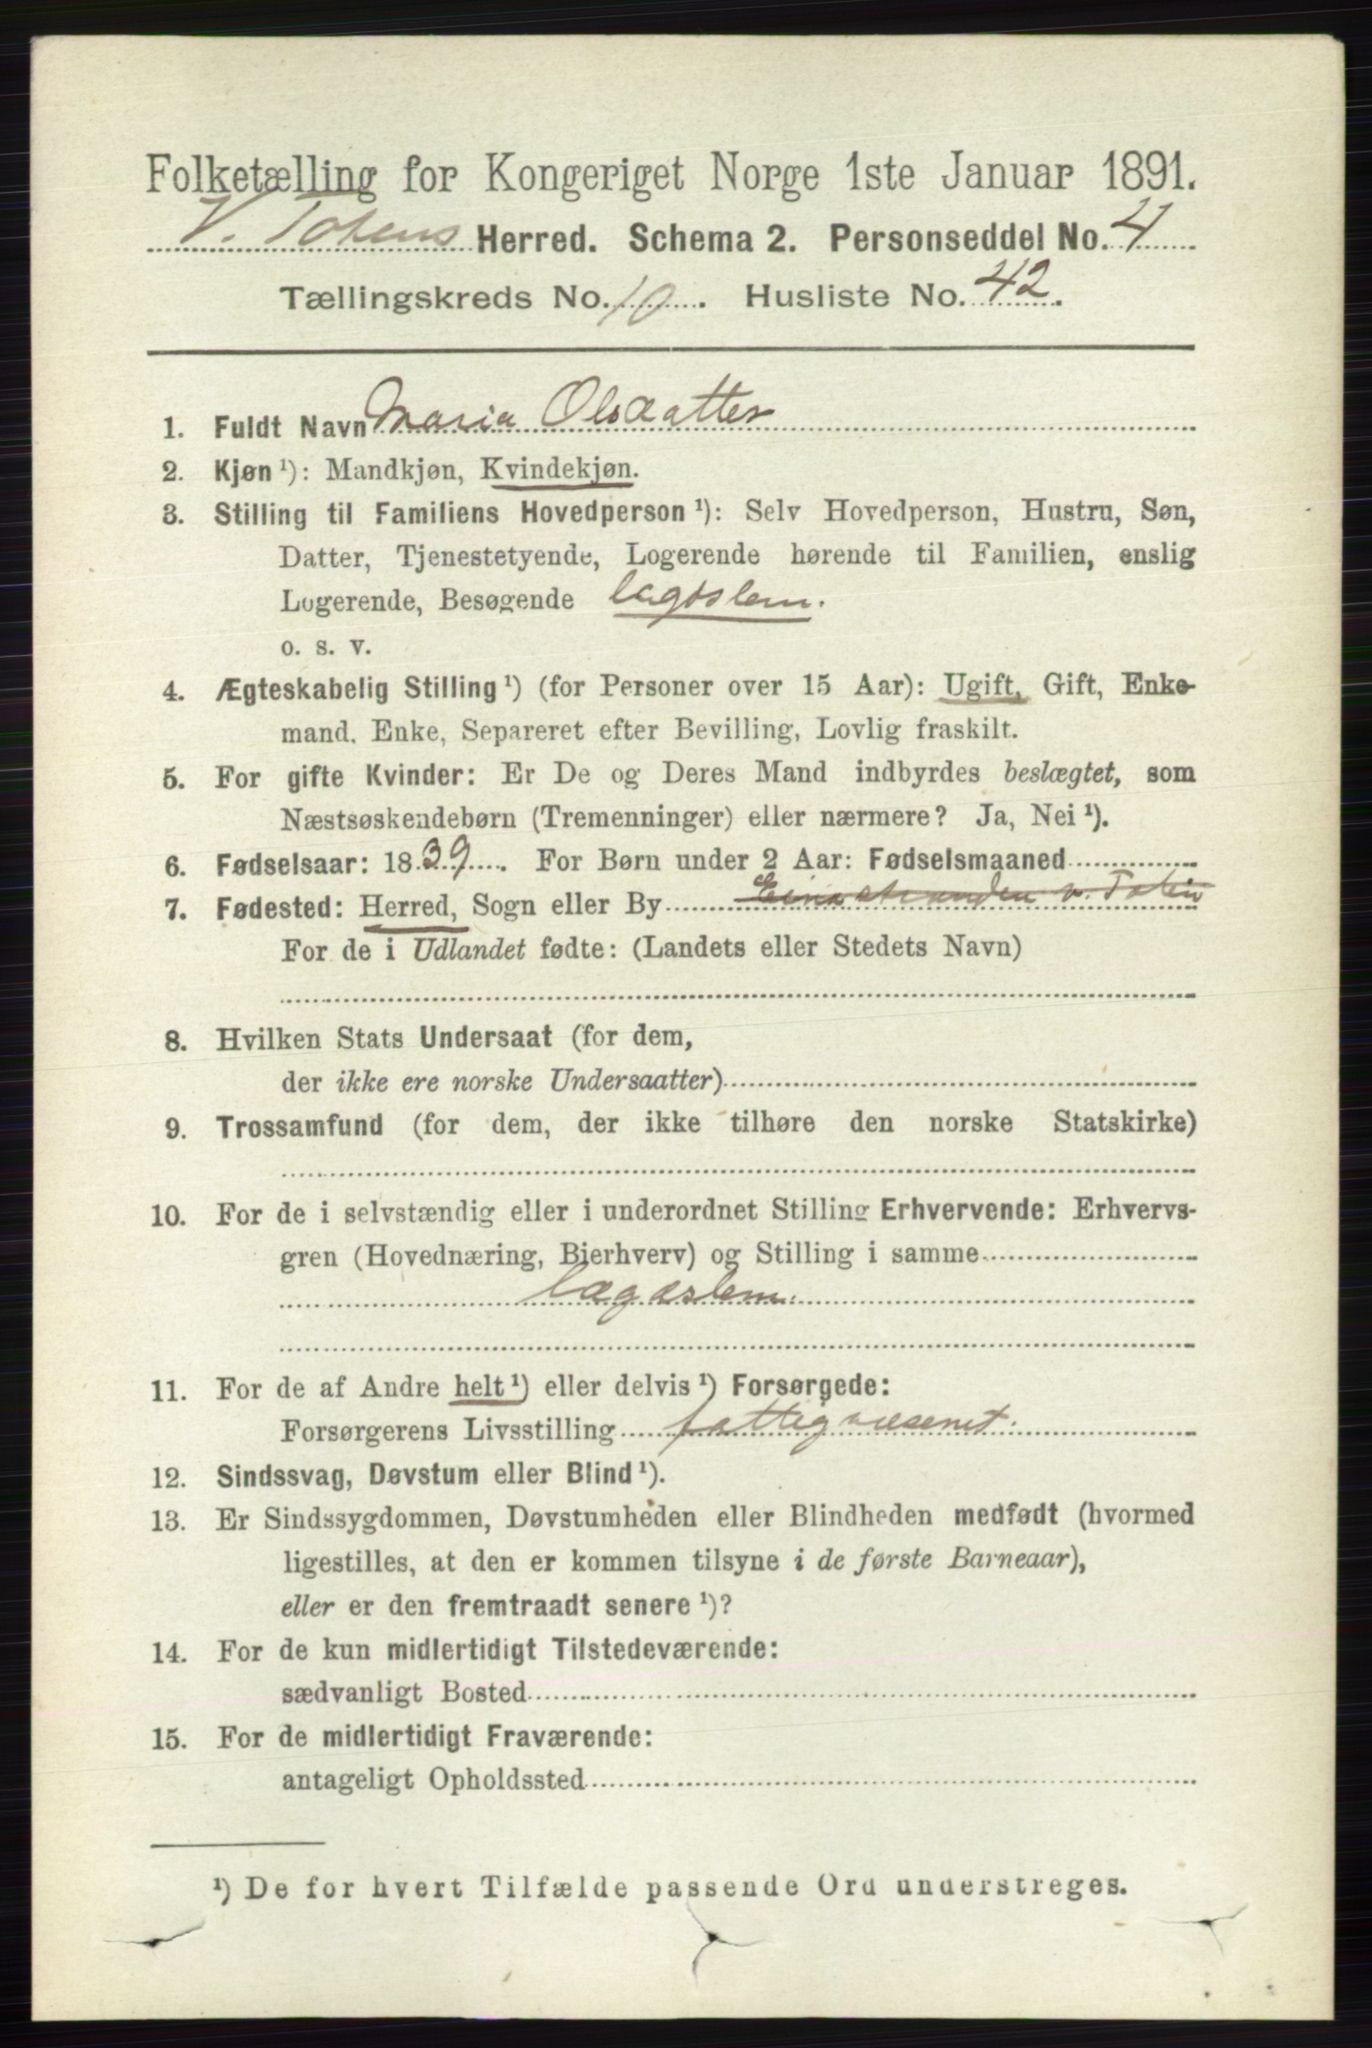 Folketælling for Kongeriget Norge 1ste Januar 1891.
V. Totens Herred. Schema 2. Personseddel No. 4
Tællingskreds No. 10. Husliste No. 42.
1. Fuldt Navn Maria Olsdatter
2. Kjøn ¹): Mandkjøn, Kvindekjøn.
3. Stilling til Familiens Hovedperson ¹): Selv Hovedperson, Hustru, Søn,
Datter, Tjenestetyende, Logerende hørende til Familien, enslig
Logerende, Besøgende lægdslem.
o. s. v.
4. Ægteskabelig Stilling ¹) (for Personer over 15 Aar): Ugift, Gift, Enke-
mand, Enke, Separeret efter Bevilling, Lovlig fraskilt.
5. For gifte Kvinder: Er De og Deres Mand indbyrdes beslægtet, som
Næstsøskendebørn (Tremenninger) eller nærmere? Ja, Nei ¹).
6. Fødselsaar: 1839. For Børn under 2 Aar: Fødselsmaaned
7. Fødested: Herred, Sogn eller By Einastranden v. Toten
For de i Udlandet fødte: (Landets eller Stedets Navn)
8. Hvilken Stats Undersaat (for dem,
der ikke ere norske Undersaatter)
9. Trossamfund (for dem, der ikke tilhøre den norske Statskirke)
10. For de i selvstændig eller i underordnet Stilling Erhvervende: Erhvervs-
gren (Hovednæring, Bierhverv) og Stilling i samme
lægdslem.
11. For de af Andre helt ¹) eller delvis ¹) Forsørgede:
Forsørgerens Livsstilling fattigvæsenet.
12. Sindssvag, Døvstum eller Blind ¹).
13. Er Sindssygdommen, Døvstumheden eller Blindheden medfødt (hvormed
ligestilles, at den er kommen tilsyne i de første Barneaar),
eller er den fremtraadt senere ¹)?
14. For de kun midlertidigt Tilstedeværende:
sædvanligt Bosted
15. For de midlertidigt Fraværende:
antageligt Opholdssted
¹) De for hvert Tilfælde passende Ord understreges.